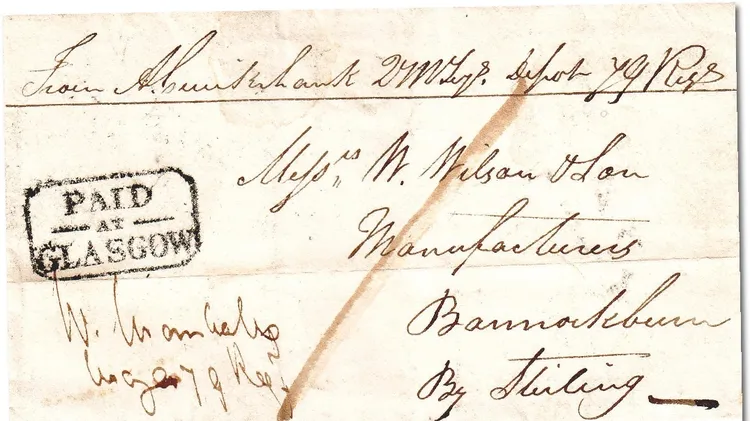 From A Cruikshank 2 M Sergt. Depot 79 Regt
Messrs W. Wilson & Son
Manufacturers
Bannockburn
By Stirling
PAID
AT
GLASGOW
W.
Major 79 Regt